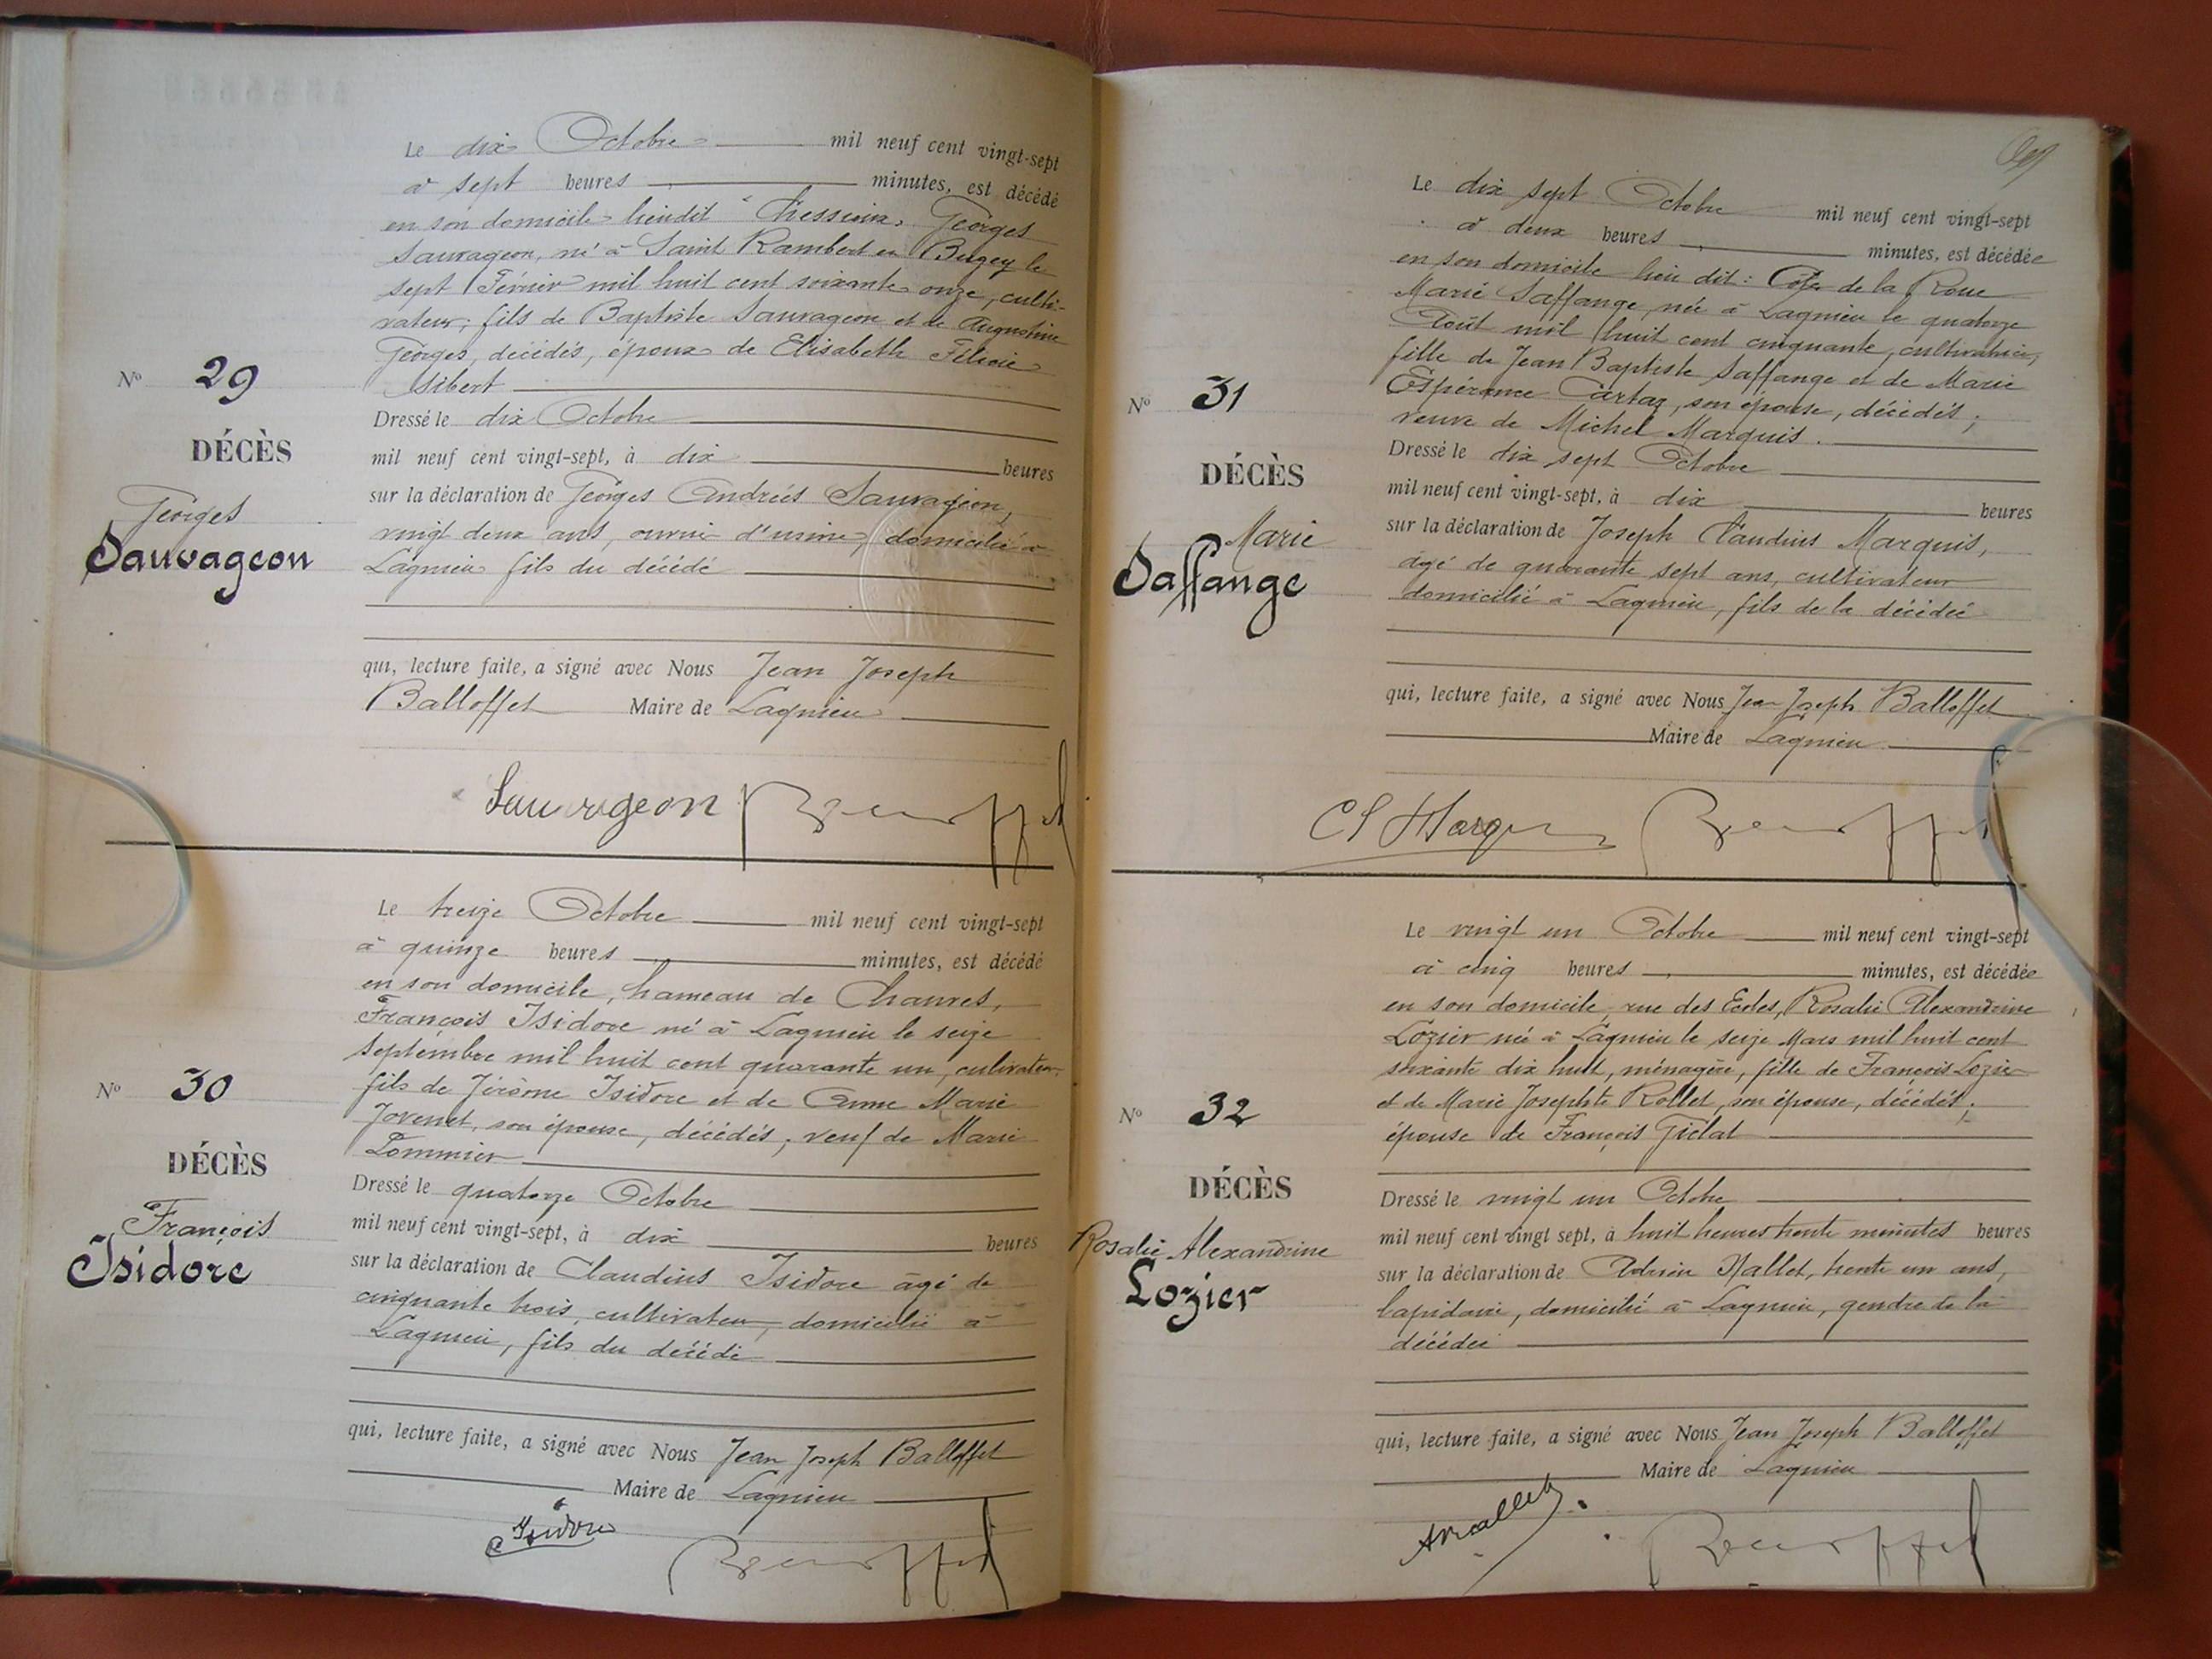 Le dix Octobre mil neuf cent vingt-sept
à sept heures minutes, est décédé
en son domicile lieudit Georges
Sauvageon, né à Saint Rambert en Bugey le
sept Février mil huit cent soixante onze, culti-
vateur, fils de Baptiste Sauvageon et de Augustine
Georges, décédés, époux de Elisabeth Félicie
Sibert
Nº 29
Dressé le dix Octobre
DÉCÈS
mil neuf cent vingt-sept, à dix heures
Georges
sur la déclaration de Georges Andréis Sauvageon,
Sauvageon
vingt deux ans, ouvrier d'usine, domicilié à
Lagnieu fils du décédé
qui, lecture faite, a signé avec Nous Jean Joseph
Balloffet Maire de Lagnieu
Sauvageon
Le treize Octobre mil neuf cent vingt-sept
à quinze heures minutes, est décédé
en son domicile, hameau de Chanves,
François Isidore né à Lagnieu le seize
septembre mil huit cent quarante un, cultivateur
Nº 30
fils de Jérôme Isidore et de Anne Marie
Jovenet, son épouse, décédés, veuf de Marie
Pommier
DÉCÈS
Dressé le quatorze Octobre
François
mil neuf cent vingt-sept, à dix heures
Isidore
sur la déclaration de Claudius Isidore âgé de
cinquante trois, cultivateur, domicilié à
Lagnieu, fils du décédé
qui, lecture faite, a signé avec Nous Jean Joseph Balloffet
Maire de Lagnieu
Isidore
Le dix sept Octobre mil neuf cent vingt-sept
à deux heures minutes, est décédée
en son domicile lieu dit: de la Roue
Marie Saffange, née à Lagnieu le quatorze
Août mil huit cent cinquante, cultivatrice,
fille de Jean Baptiste Saffange et de Marie
Nº 31
Espérance Cartaz, son épouse, décédés,
veuve de Michel Marquis.
DÉCÈS
Dressé le dix sept Octobre
mil neuf cent vingt-sept, à dix heures
Marie
sur la déclaration de Joseph Claudius Marquis,
Saffange
âgé de quarante sept ans, cultivateur
domicilié à Lagnieu, fils de la décédée
qui, lecture faite, a signé avec Nous Jean Joseph Balloffet
Maire de Lagnieu
Le vingt un Octobre mil neuf cent vingt-sept
à cinq heures minutes, est décédée
en son domicile, rue des Ecoles, Rosalie Alexandrine
Lozier née à Lagnieu le seize Mars mil huit cent
soixante dix huit, ménagère, fille de François Lozier
Nº 32
et de Marie Josephte Rollet, son épouse, décédés,
épouse de François Giclat
DÉCÈS
Dressé le vingt un Octobre
Rosalie Alexandrine
mil neuf cent vingt sept, à huit heures trente minutes heures
Lozier
sur la déclaration de Adrien Mallet, trente un ans,
lapidaire, domicilié à Lagnieu, gendre de la
décédée
qui, lecture faite, a signé avec Nous Jean Joseph Balloffet
Maire de Lagnieu